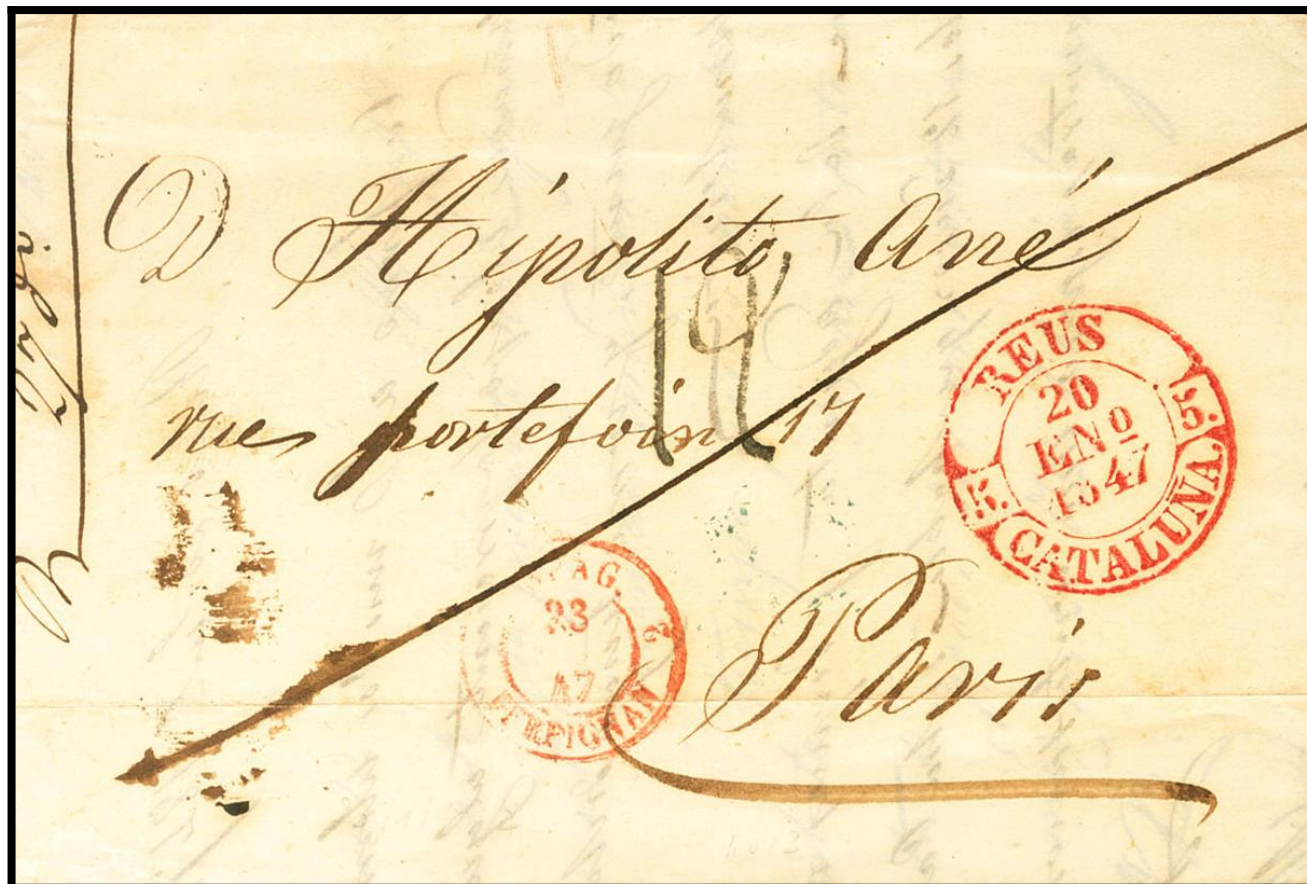 D Hipolito Arré
19
rue portefoin 17
REUS
20
ENº
1847
5. 5.
CATALUÑA.
PAG.
23
47
2
PERPIGNAN
Paris